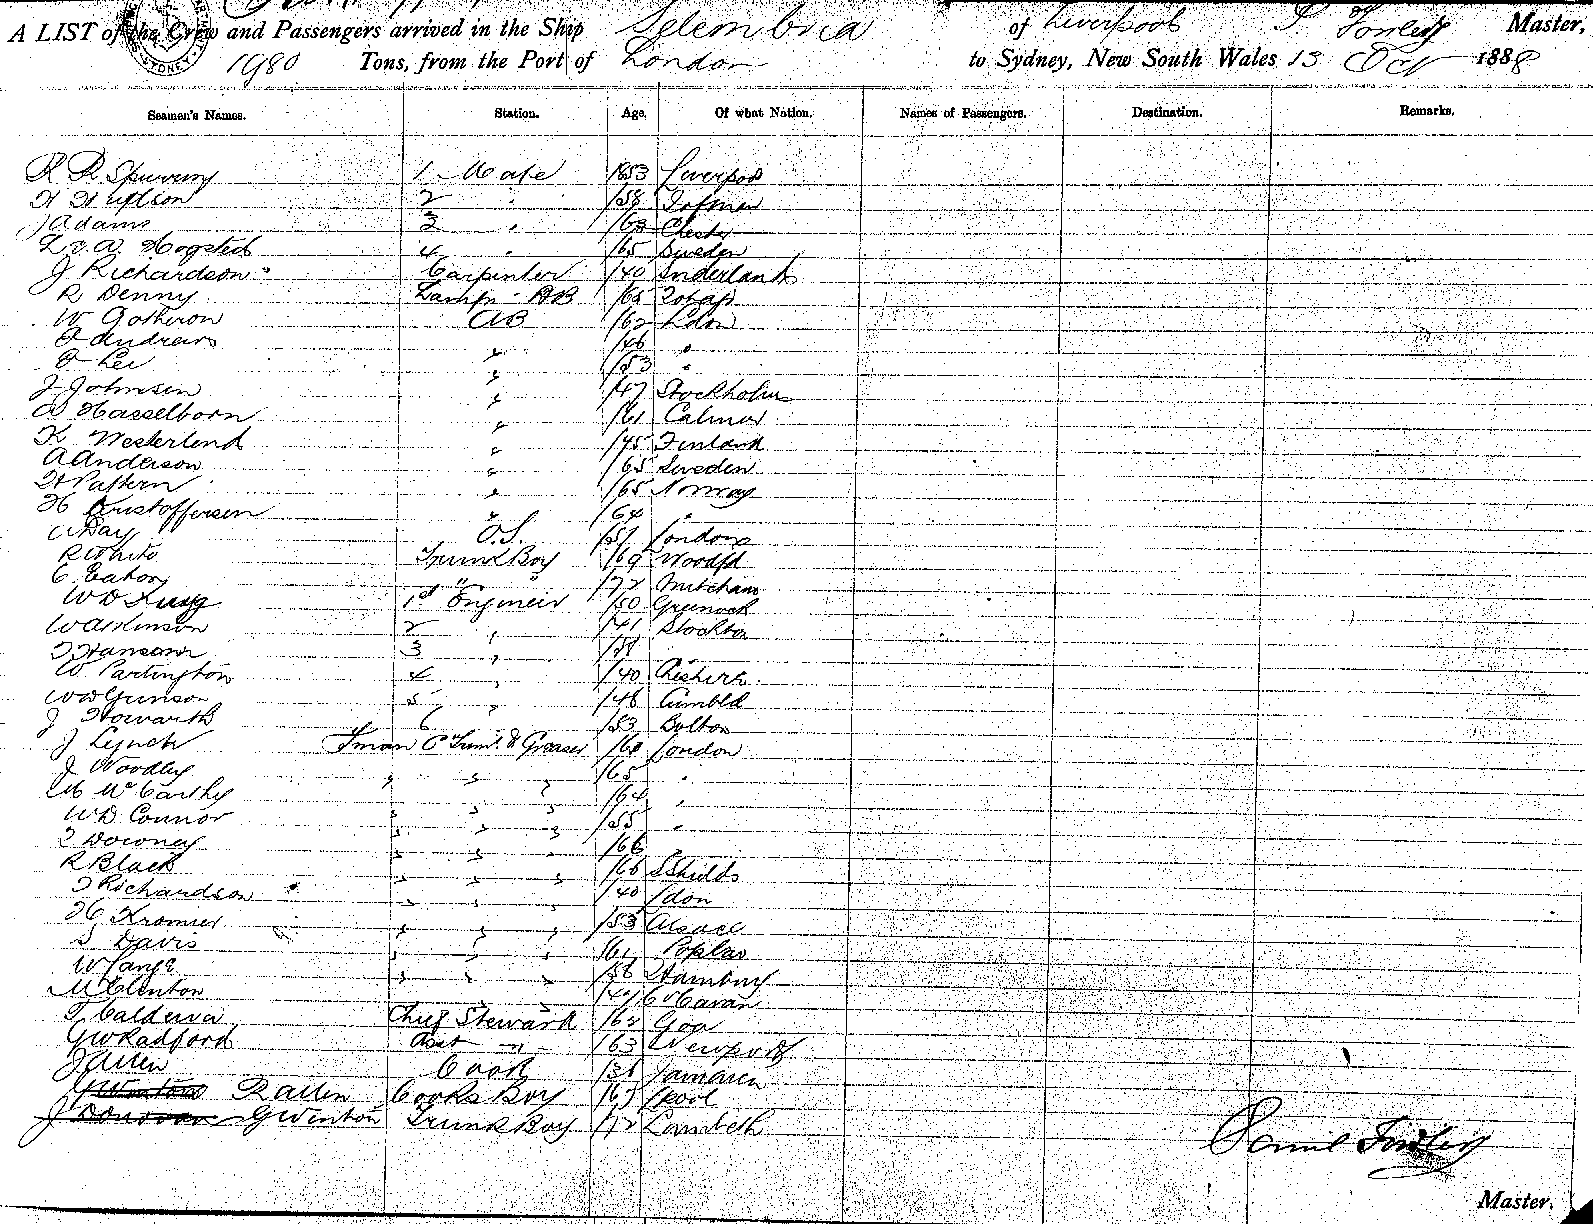 A LIST of the Crew and Passengers arrived in the Ship Selembria of Liverpool S Fowley Master,
SYDNEY
1980 Tons, from the Port of London to Sydney, New South Wales 13 Oct 1888
Seamen's Names. Station. Age. Of what Nation. Names of Passengers. Destination. Remarks.
R R 1 Mate 1853 Liverpool
2 " /58
J Adams 3 " /63 Chester
Hogsted 4 " /65 Sweden
J Richardson Carpenter /40 Sunderland
R Denny Lamps AB /65
W Gotheron AB /62 Ldon
Andrews " /46 "
Lee " /53 "
J Johnson " /47 Stockholm
A Hasselborn " /61 Calmar
K Westerlund " /45 Finland
A Anderson " /65 Sweden
H Pattern " /65 Norway
H Kristoffersen " /64 "
Day O.S. /57 London
R White Trunk Boy /69 Woodfd
C. Eaton " " /72 Mitcham
W D 1st Engineer /50 Greenock
W Atkinson 2 " /41 Stockton
Hansom 3 "
W. Partington 4 " /40
W W Grinson 5 " /48 Cumbld
J Howarth 6 /53 Bolton
J Lynch Fman & Trimr & Greaser London
J Woodley " " " /65 "
M McCarthy " " " /64 "
W D Connor " " " /55 "
Downey " " " /66 "
R Black " " " /66 S Shields
Richardson " " " /40 Ldon
H Kromer " " " /53 Alsace
S Davis " " " /61 Poplar
W Lange " " " /56 Hamburg
M Clenton Co Cavan
Caldeira Chief Steward /62 Goa
G W Radford Asst " /63 Liverpool
J Allen Cook Jamaica
G Winton R Allen Cooks Boy Lpool
J Donovan G Winton Trunk Boy /72 Lambeth
Saml Fowley
Master.